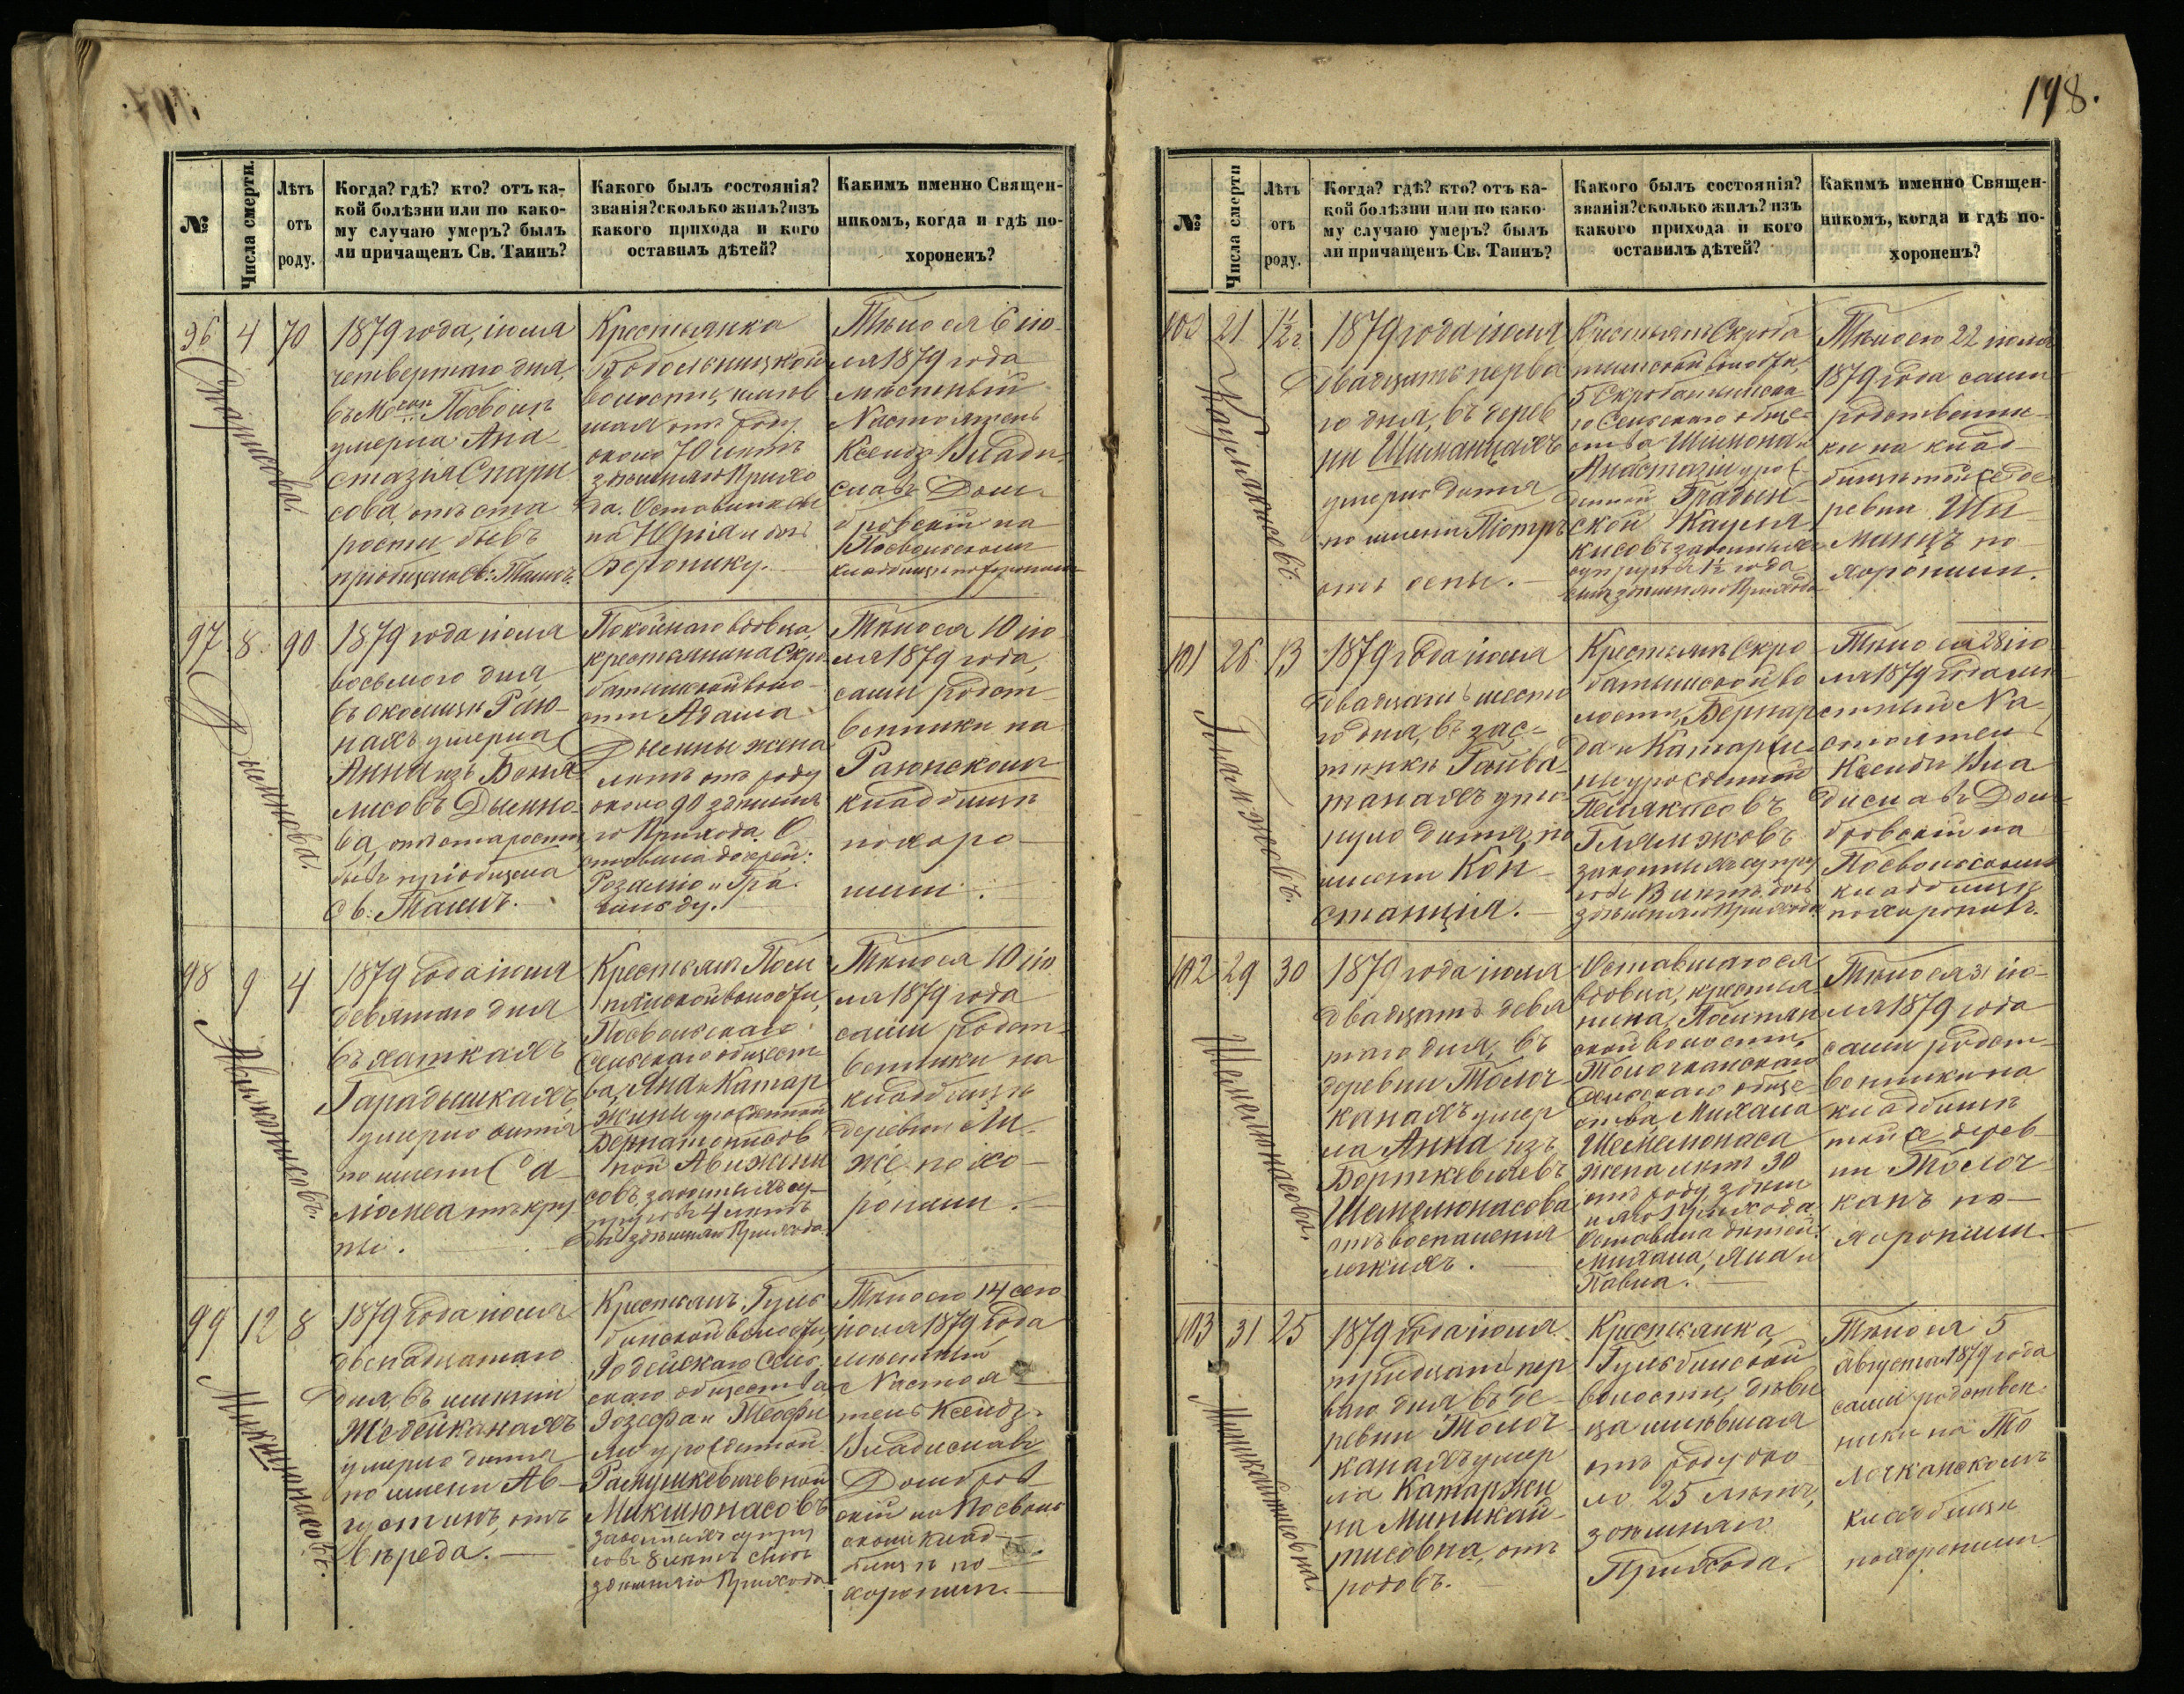 №
Числа смерти.
Лѣтъ
отъ
роду.
Когда? гдѣ? кто? отъ ка-
кой болѣзни или по како-
му случаю умеръ? былъ
ли причащенъ Св. Таинъ?
Какого былъ состоянія?
званія? сколько жилъ? изъ
какого прихода и кого
оставилъ дѣтей?
Какимъ именно Священ-
никомъ, когда и гдѣ по-
хороненъ?
96
4
70
1879 года, іюля
четвертаго дня,
въ Посволь
умерла Ана-
стазія Скари
сова, отъ ста
рости бывъ
пріобщена Св: Таинъ.
Крестьянка
волости, имѣв
шая отъ роду
около 70 лѣтъ
здѣшняго Прихо
да. Оставила сы
на Юрія и дочь
Веронику.
Тѣло ея 6 ію-
ля 1879 года
мѣстный
Настоятель
Ксендзъ Влади-
славъ Дом-
бровскій на
Посвольскомъ
кладбищѣ похоронилъ
97
8
90
1879 года іюля
восьмого дня
въ околицѣ Раю-
нахъ умерла
Анна изъ Боня
лисовъ Дымно-
ва, отъ старости
бывъ пріобщена
Св: Таинъ.
Покойнаго вдовца,
крестьянина Скро
батишкской воло-
сти Адама
Дымны жена
лѣтъ отъ роду
около 90 здѣшня
го Прихода. О
ставила дочерей:
Розалію и Гра-
Тѣло ея 10 ію-
ля 1879 года,
сами родст-
венники на
Раюнскомъ
кладбищѣ
похоро-
нили.
98
9
4
1879 года іюля
девятаго дня
въ хаткахъ
Гарадышкахъ
умерло дитя
по имени Са-
ломея отъ кру
пы.
Крестьянъ Поси
волости,
Посвольскаго
Сельскаго общест-
ва, Яна и Катар
жины урожденной
Авижени
совъ законныхъ су-
пруговъ 4 лѣтъ
дочь здѣшняго Прихода.
Тѣло ея 10 ію-
ля 1879 года
сами родст-
венники на
кладбищѣ
деревни Ли-
же похо-
ронили.
99
12
8
1879 года іюля
двѣнадцатаго
дня, въ имѣніи
Жедейканахъ
умерло дитя
по имени Ав-
густинъ, отъ
вереда.
Крестьянъ, Гуль
бинской волости,
Сель-
скаго общества
Іозефа и Теофи
ли урожденной
Распушкевичевной
Миклюнасовъ
законныхъ супру
говъ 8 лѣтъ сынъ
здѣшняго Прихода.
Тѣло его 14 сего
іюля 1879 года
мѣстный
Настоя-
тель Ксендзъ
Владиславъ
Домбров
скій на Посволь
скомъ клад-
бищѣ по-
хоронилъ.
198.
№
Числа смерти
Лѣтъ
отъ
роду.
Когда? гдѣ? кто? отъ ка-
кой болѣзни или по како-
му случаю умеръ? былъ
ли причащенъ Св. Таинъ?
Какого былъ состоянія?
званія? сколько жилъ? изъ
какого прихода и кого
оставилъ дѣтей?
Какимъ именно Священ-
никомъ, когда и гдѣ по-
хороненъ?
21
1½ г.
1879 года іюля
двадцать перва
го дня, въ дерев
ни Шиманцахъ
умерло дитя
по имени Піотръ
отъ оспы.
Крестьянъ Скроба
тишкской волости,
го Сельскаго обще-
ства Шимона и
Анастазіи урож-
денной Градин
ской Кауля
кисовъ законныхъ
супруговъ 1½ года
сынъ здѣшняго Прихода
Тѣло его 22 іюля
1879 года сами
родственни-
ки на клад-
бищѣ той же де
ревни Ши-
манцъ по-
хоронили.
101
26
13
1879 года іюля
двадцать шесто
го дня, въ зас-
тѣнкѣ Гайва
танахъ
дитя, по
имени Кон-
станція.
Крестьянъ Скро
батишкской во
лости, Бернар
да и Катаржи
ны урожденной
Петякисовъ
Глямжовъ
законныхъ супру
говъ 13 лѣтъ дочь
здѣшняго Прихода
Тѣло ея 28 ію
ля 1879 года мѣ
стный На
стоятель
Ксендзъ Вла
диславъ Дом-
бровскій на
Посвольскомъ
кладбищѣ
похоронилъ.
102
29
30
1879 года іюля
двадцать девя
таго дня, въ
деревни Толоч-
канахъ умер
ла Анна изъ
Борткевичевъ
Шемелюнасова
отъ воспаленія
легкихъ.
Оставшагося
вдовца, крестья-
нина,
ской волости,
Толочканскаго
Сельскаго обще-
ства, Михала
Шемелюнаса
жена лѣтъ 30
отъ роду, здѣш
няго Прихода
Оставила дѣтей:
Михала, Яна и
Павла.
Тѣло ея 31 ію-
ля 1879 года
сами родст-
венники на
кладбищѣ
той же дерев-
ни Толоч-
канъ по-
хоронили.
103
31
25
1879 года іюля
тридцать пер
ваго дня въ де-
ревни Толоч-
канахъ умер
ла Катаржи
на Миникай-
тисовна, отъ
родовъ.
Крестьянка
Гульбинской
волости, дѣви
ца имѣвшая
отъ роду око-
ло 25 лѣтъ,
здѣшняго
Прихода.
Тѣло ея 5
Августа 1879 года
сами родствен-
ники на То
лочканскомъ
кладбищѣ
похоронили